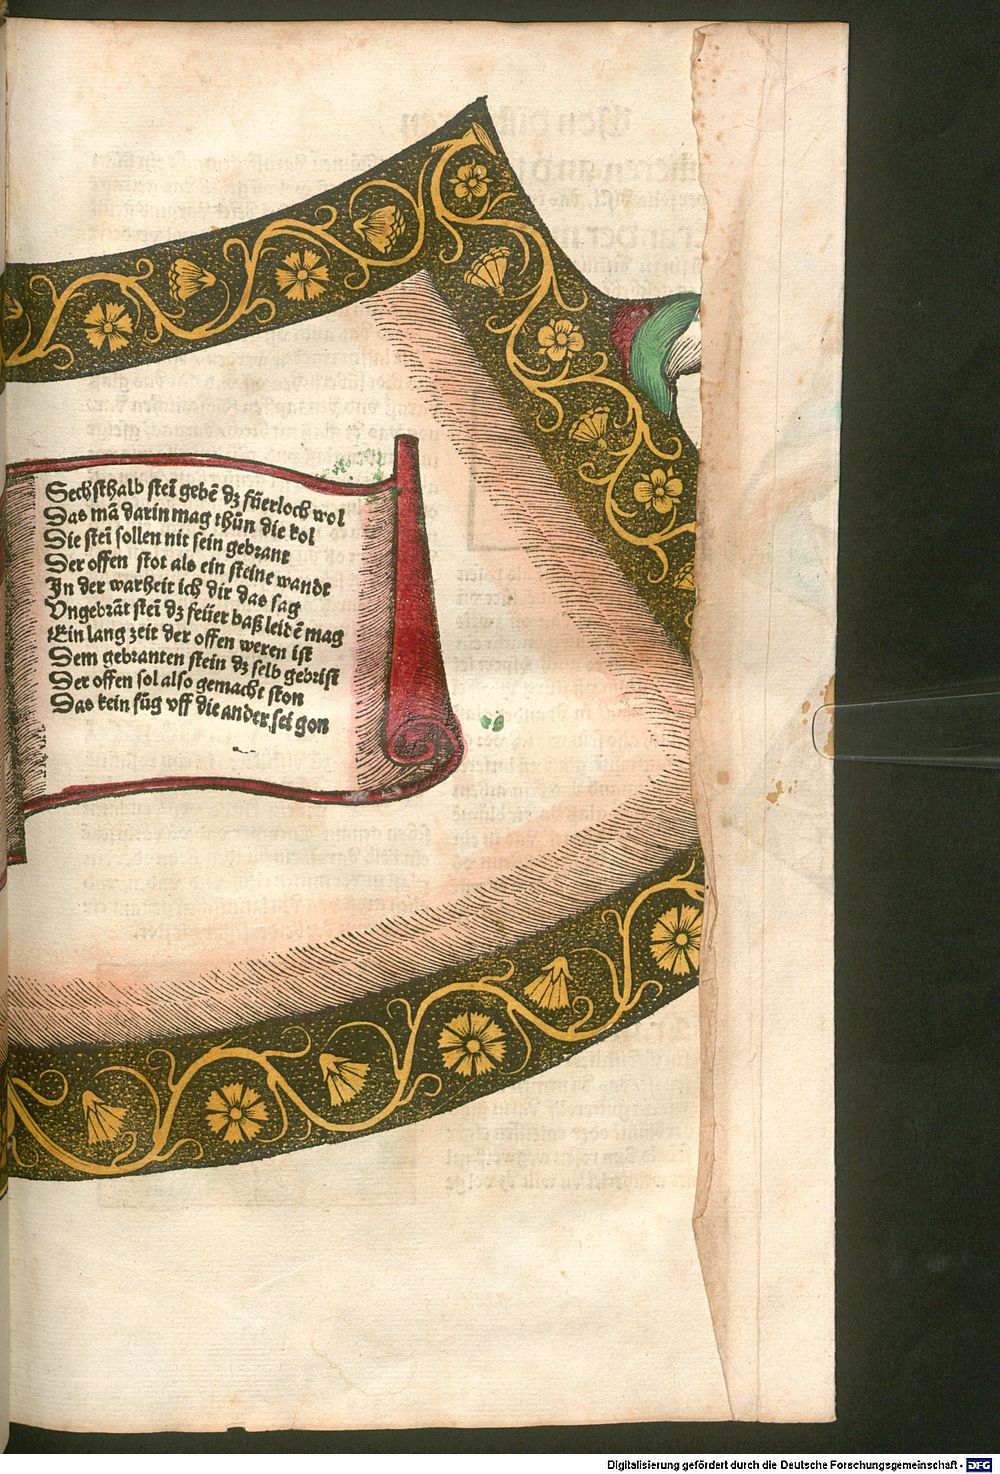 Sechsthalb steī gebē dz füerloch wol
Das mā darin mag thůn die kol
Die steī sollen nit sein gebrant
Der offen stot als ein steine wandt
In der warheit ich dir das sag
Vngebrāt steī dz feüer baß leidē mag
Ein lang zeit der offen weren ist
Dem gebranten stein dz selb gebrist
Der offen sol also gemacht ston
Das kein fůg vff die ander sei gon
Digitalisierung gefördert durch die Deutsche Forschungsgemeinschaft - DFG